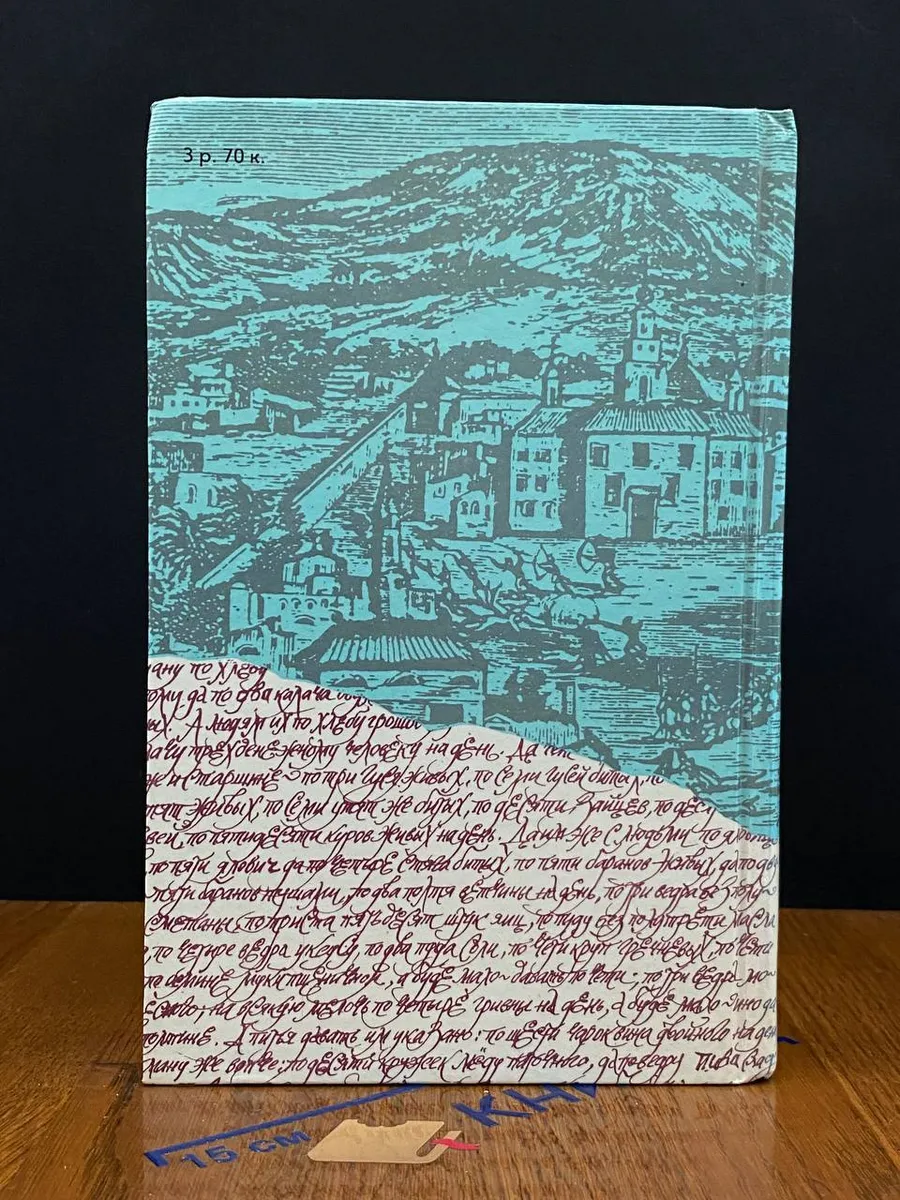 3 р. 70 к.
ану по хлебу
ому да по два калача
ых. А людям их по хлебу грошов
человеку на день. Да
же и старшие по три гуся живых, по семи гусей битых, по
утят живых, по семи утят же битых, по десяти зайцев, по дес
вей, по пятидесяти куров живых на день. Да им же с людьми по
по пяти ялович да по четыре стяга битых, по пяти баранов живых, да по дв
пяти баранов по два полтя ветчины на день, по три ведра
сметаны, по триста пятьдесят штук яиц, по пуду без полутрети масла
, по четыре ведра уксусу, по два пуда соли, по чети круп гречневых, по чети
по осмине муки пшеничной, а буде мало - давать по чети; по три ведра мо
на всякую мелочь по четыре гривны на день, а буде мало - ино да
полтине. А питья давать им указано: по шести чарок вина двойного на ден
ману же вотче; по десяти кружек меду паточного, да по ведру пива
15 см
КНИ